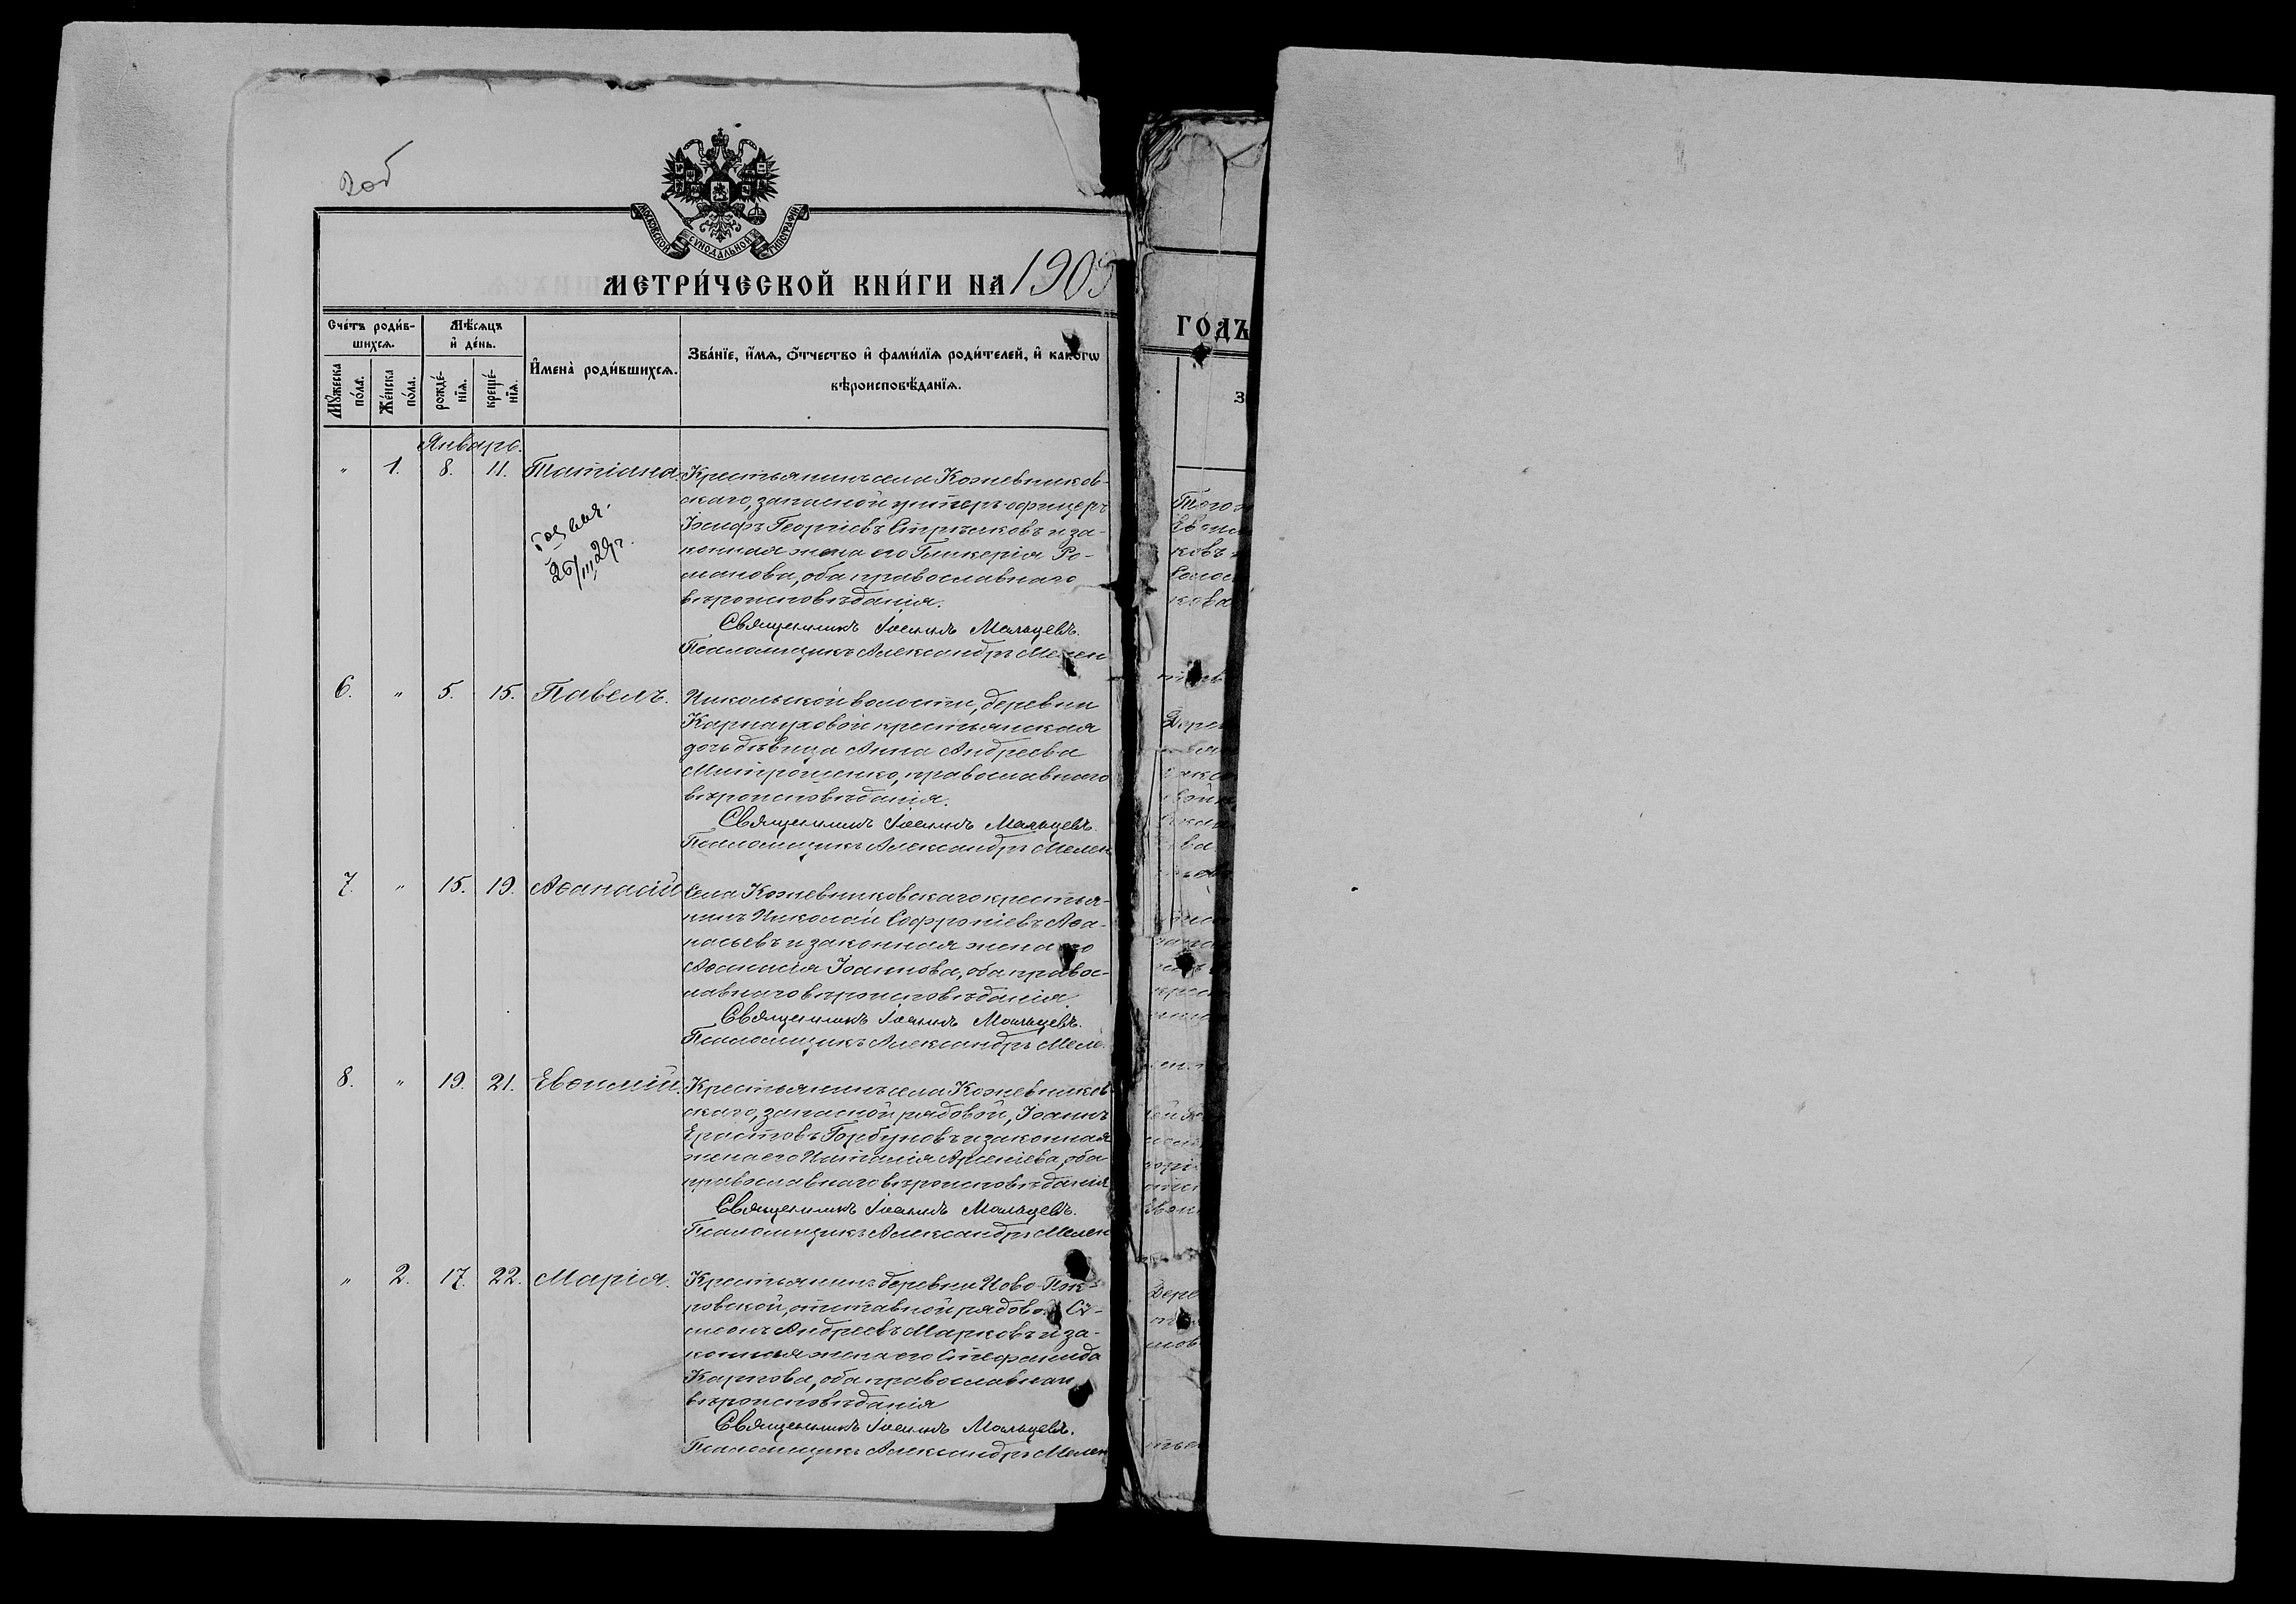 МОСКОВСКОЙ СѴНОДАЛЬНОЙ ТИПОГРАФІИ
МЕТРИ́ЧЕСКОЙ КНИ́ГИ НА 1909
Сче́тъ роди́в-
шихсѧ.
Мꙋ́жеска
по́ла.
Же́нска
по́ла.
Мѣ́сѧцъ
и҆ де́нь.
рожде́-
нїѧ.
креще́-
нїѧ.
И҆мена̀ роди́вшихсѧ.
Зва́нїе, и҆́мѧ, ѻ҆́тчество и҆ фами́лїѧ роди́телей, и҆ како́гѡ
вѣроисповѣ́данїѧ.
Январь.
" 1. 8. 11. Татіана.
Крестьянинъ села Кожевников-
скаго, запасной унтеръ-офицеръ
Іосифъ Георгіевъ Стрѣлковъ и за-
конная жена его Гликерія Ро-
манова, оба православнаго
вѣроисповѣданія.
Священникъ Іоаннъ Мальцевъ.
Псаломщикъ Александръ
26/III 29 г.
6. " 5. 15. Павелъ.
Никольской волости, деревни
Карнауховой крестьянская
дочь дѣвица Анна Андреева
Митрошенко, православнаго
вѣроисповѣданія.
Священникъ Іоаннъ Мальцевъ.
Псаломщикъ Александръ Мелен
7. " 15. 19. Аѳанасій
Села Кожевниковскаго крестья-
нинъ Николай Софроніевъ Аѳа-
насьевъ и законная жена его
Аѳанасія Іоаннова, оба правос-
лавнаго вѣроисповѣданія.
Священникъ Іоаннъ Мальцевъ.
Псаломщикъ Александръ Меле
8. " 19. 21. Евѳимій.
Крестьянинъ села Кожевников
скаго, запасной рядовой, Іоаннъ
Ерастовъ Горбуновъ и законная
жена его Наталія Арсеніева, оба
православнаго вѣроисповѣданія
Священникъ Іоаннъ Мальцевъ.
Псаломщикъ Александръ Мелен
" 2. 17. 22. Марія.
Крестьянинъ деревни Ново-Пок-
ровской, отставной рядовой Си-
меонъ Андреевъ Марковъ и за-
конная жена его Стефанида
Карпова, оба православнаго
вѣроисповѣданія
Священникъ Іоаннъ Мальцевъ.
Псаломщикъ Александръ Мелен
ГО́ДЪ